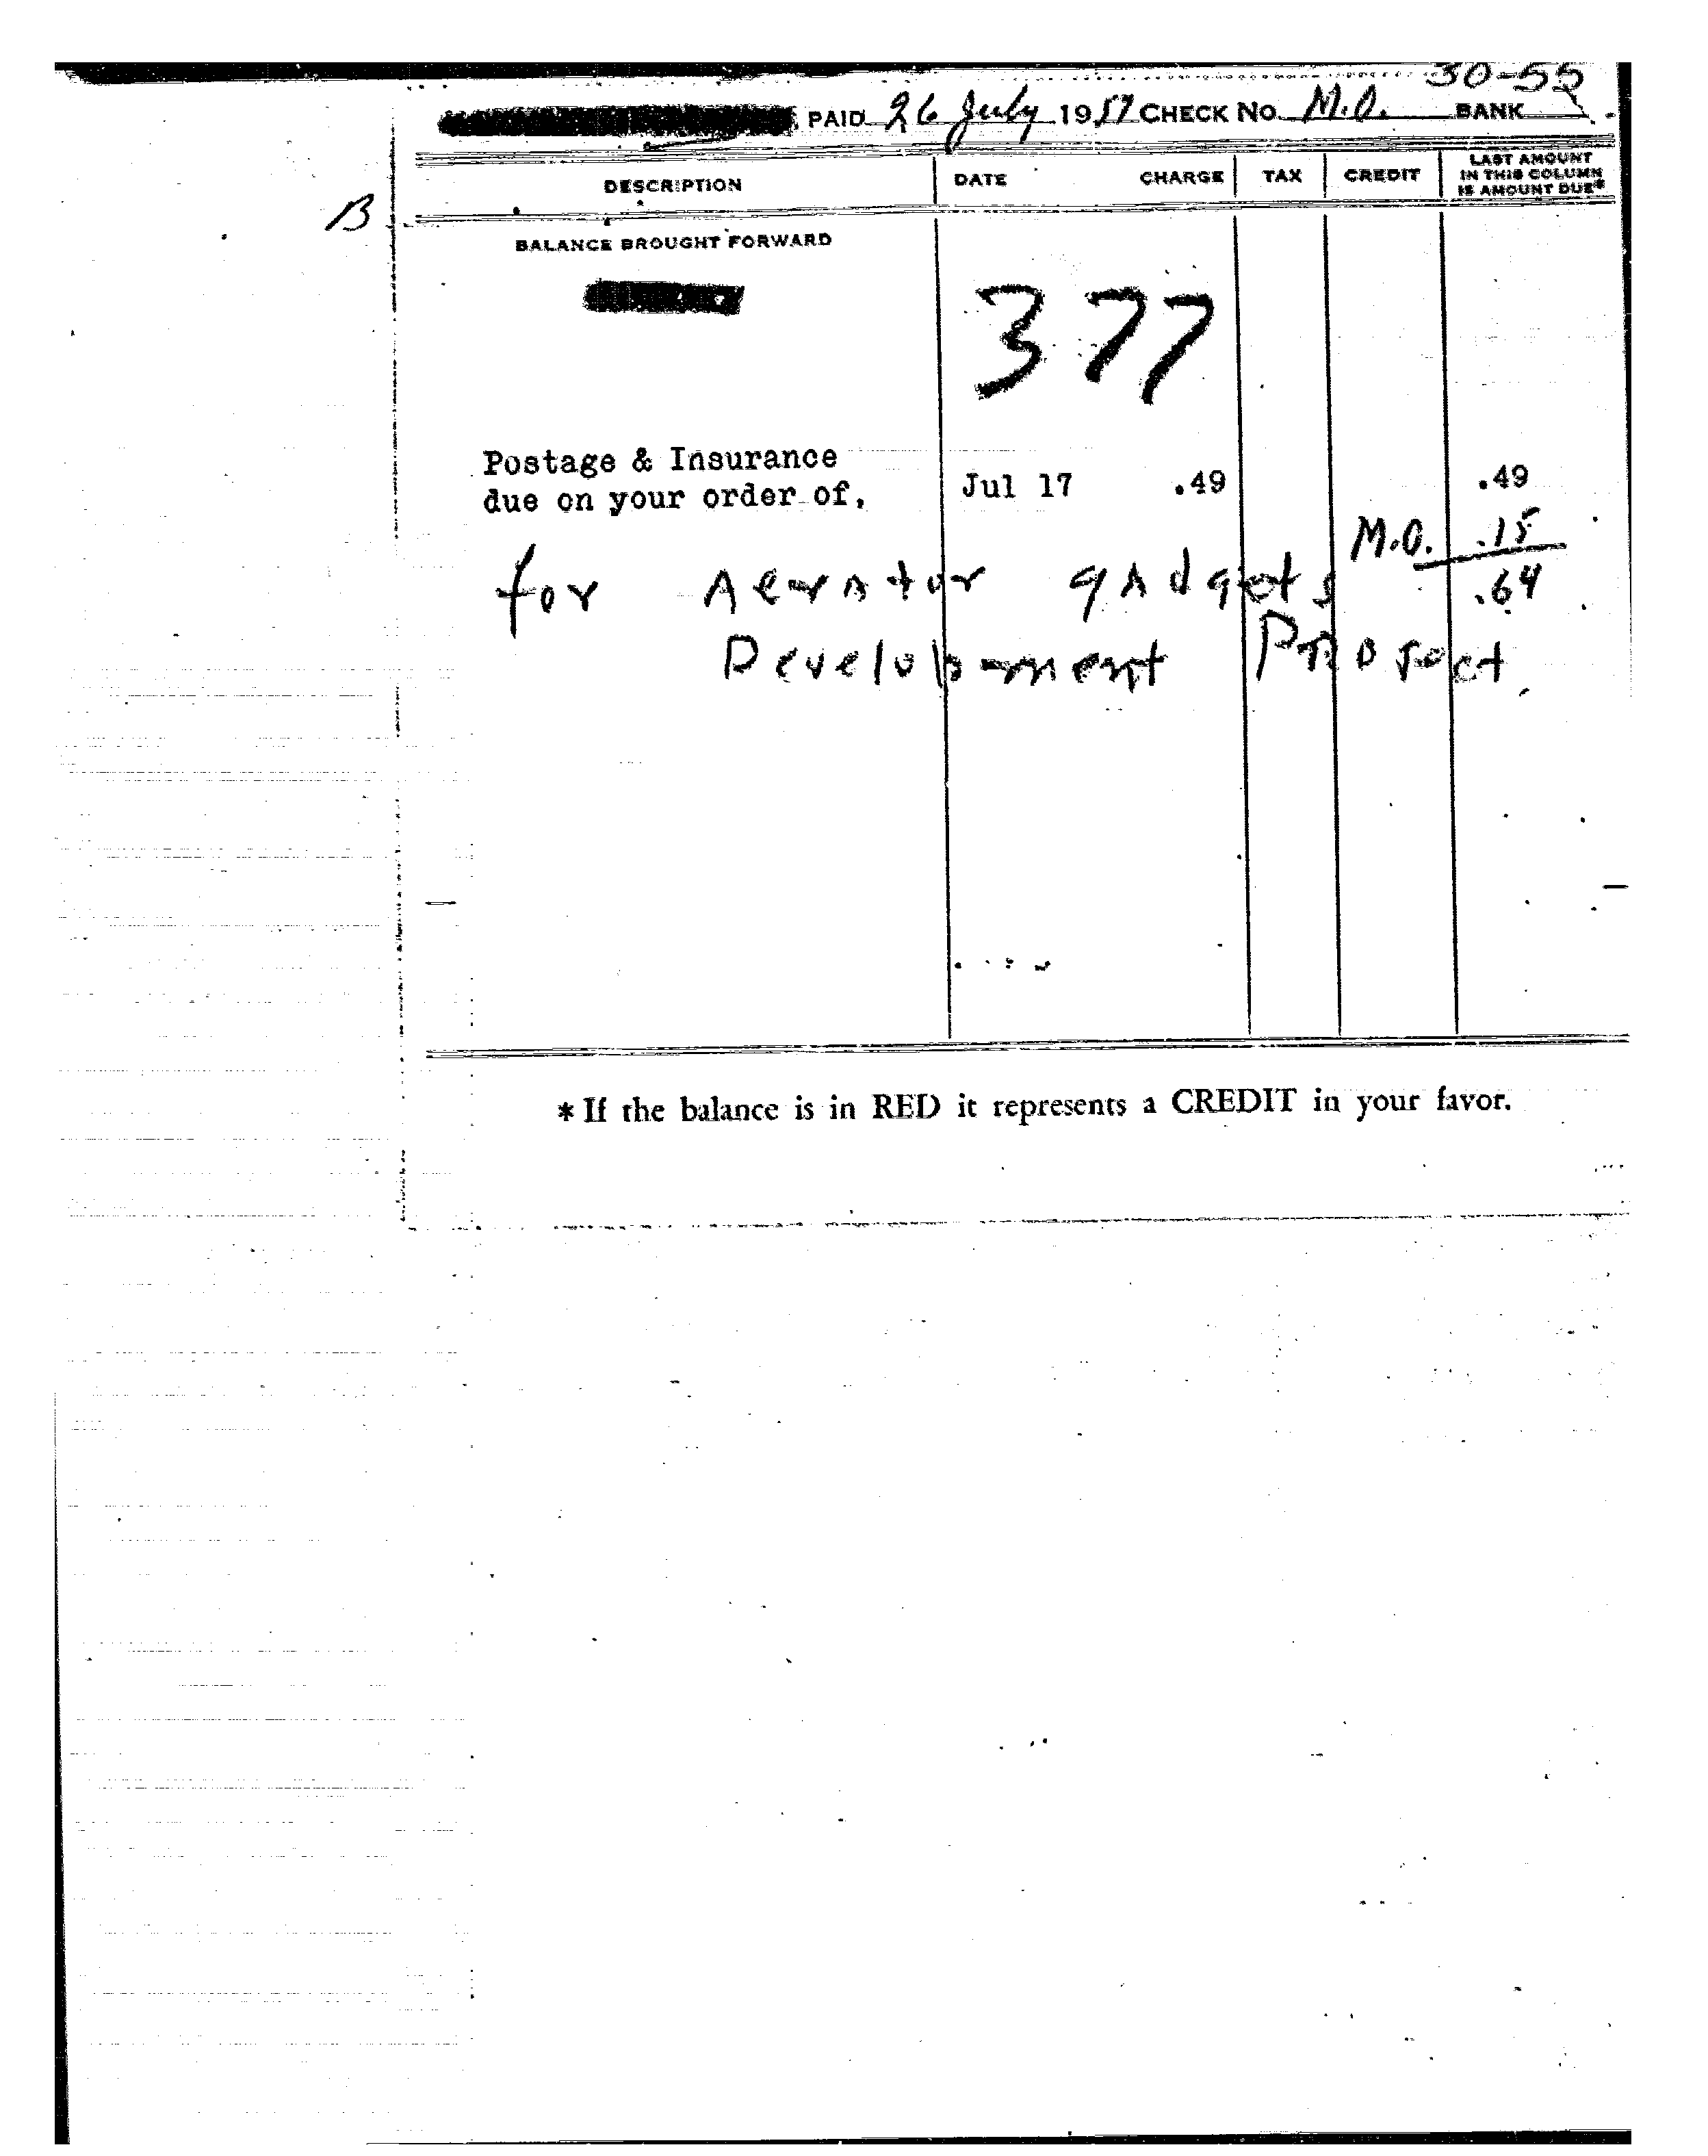 30-55
PAID 26 July 1957 CHECK NO. M.O. BANK
DESCRIPTION DATE CHARGE TAX CREDIT LAST AMOUNT IN THIS COLUMN IS AMOUNT DUE*
B
BALANCE BROUGHT FORWARD
377
Postage & Insurance
due on your order of, Jul 17 .49 .49
M.O. .15
for Aerator gadgets .64
Development Project.
* If the balance is in RED it represents a CREDIT in your favor.